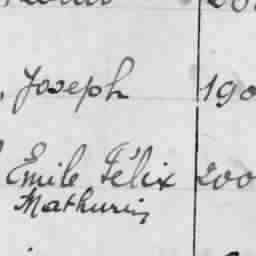 , Joseph 190
Emile Félix 200
Mathurin